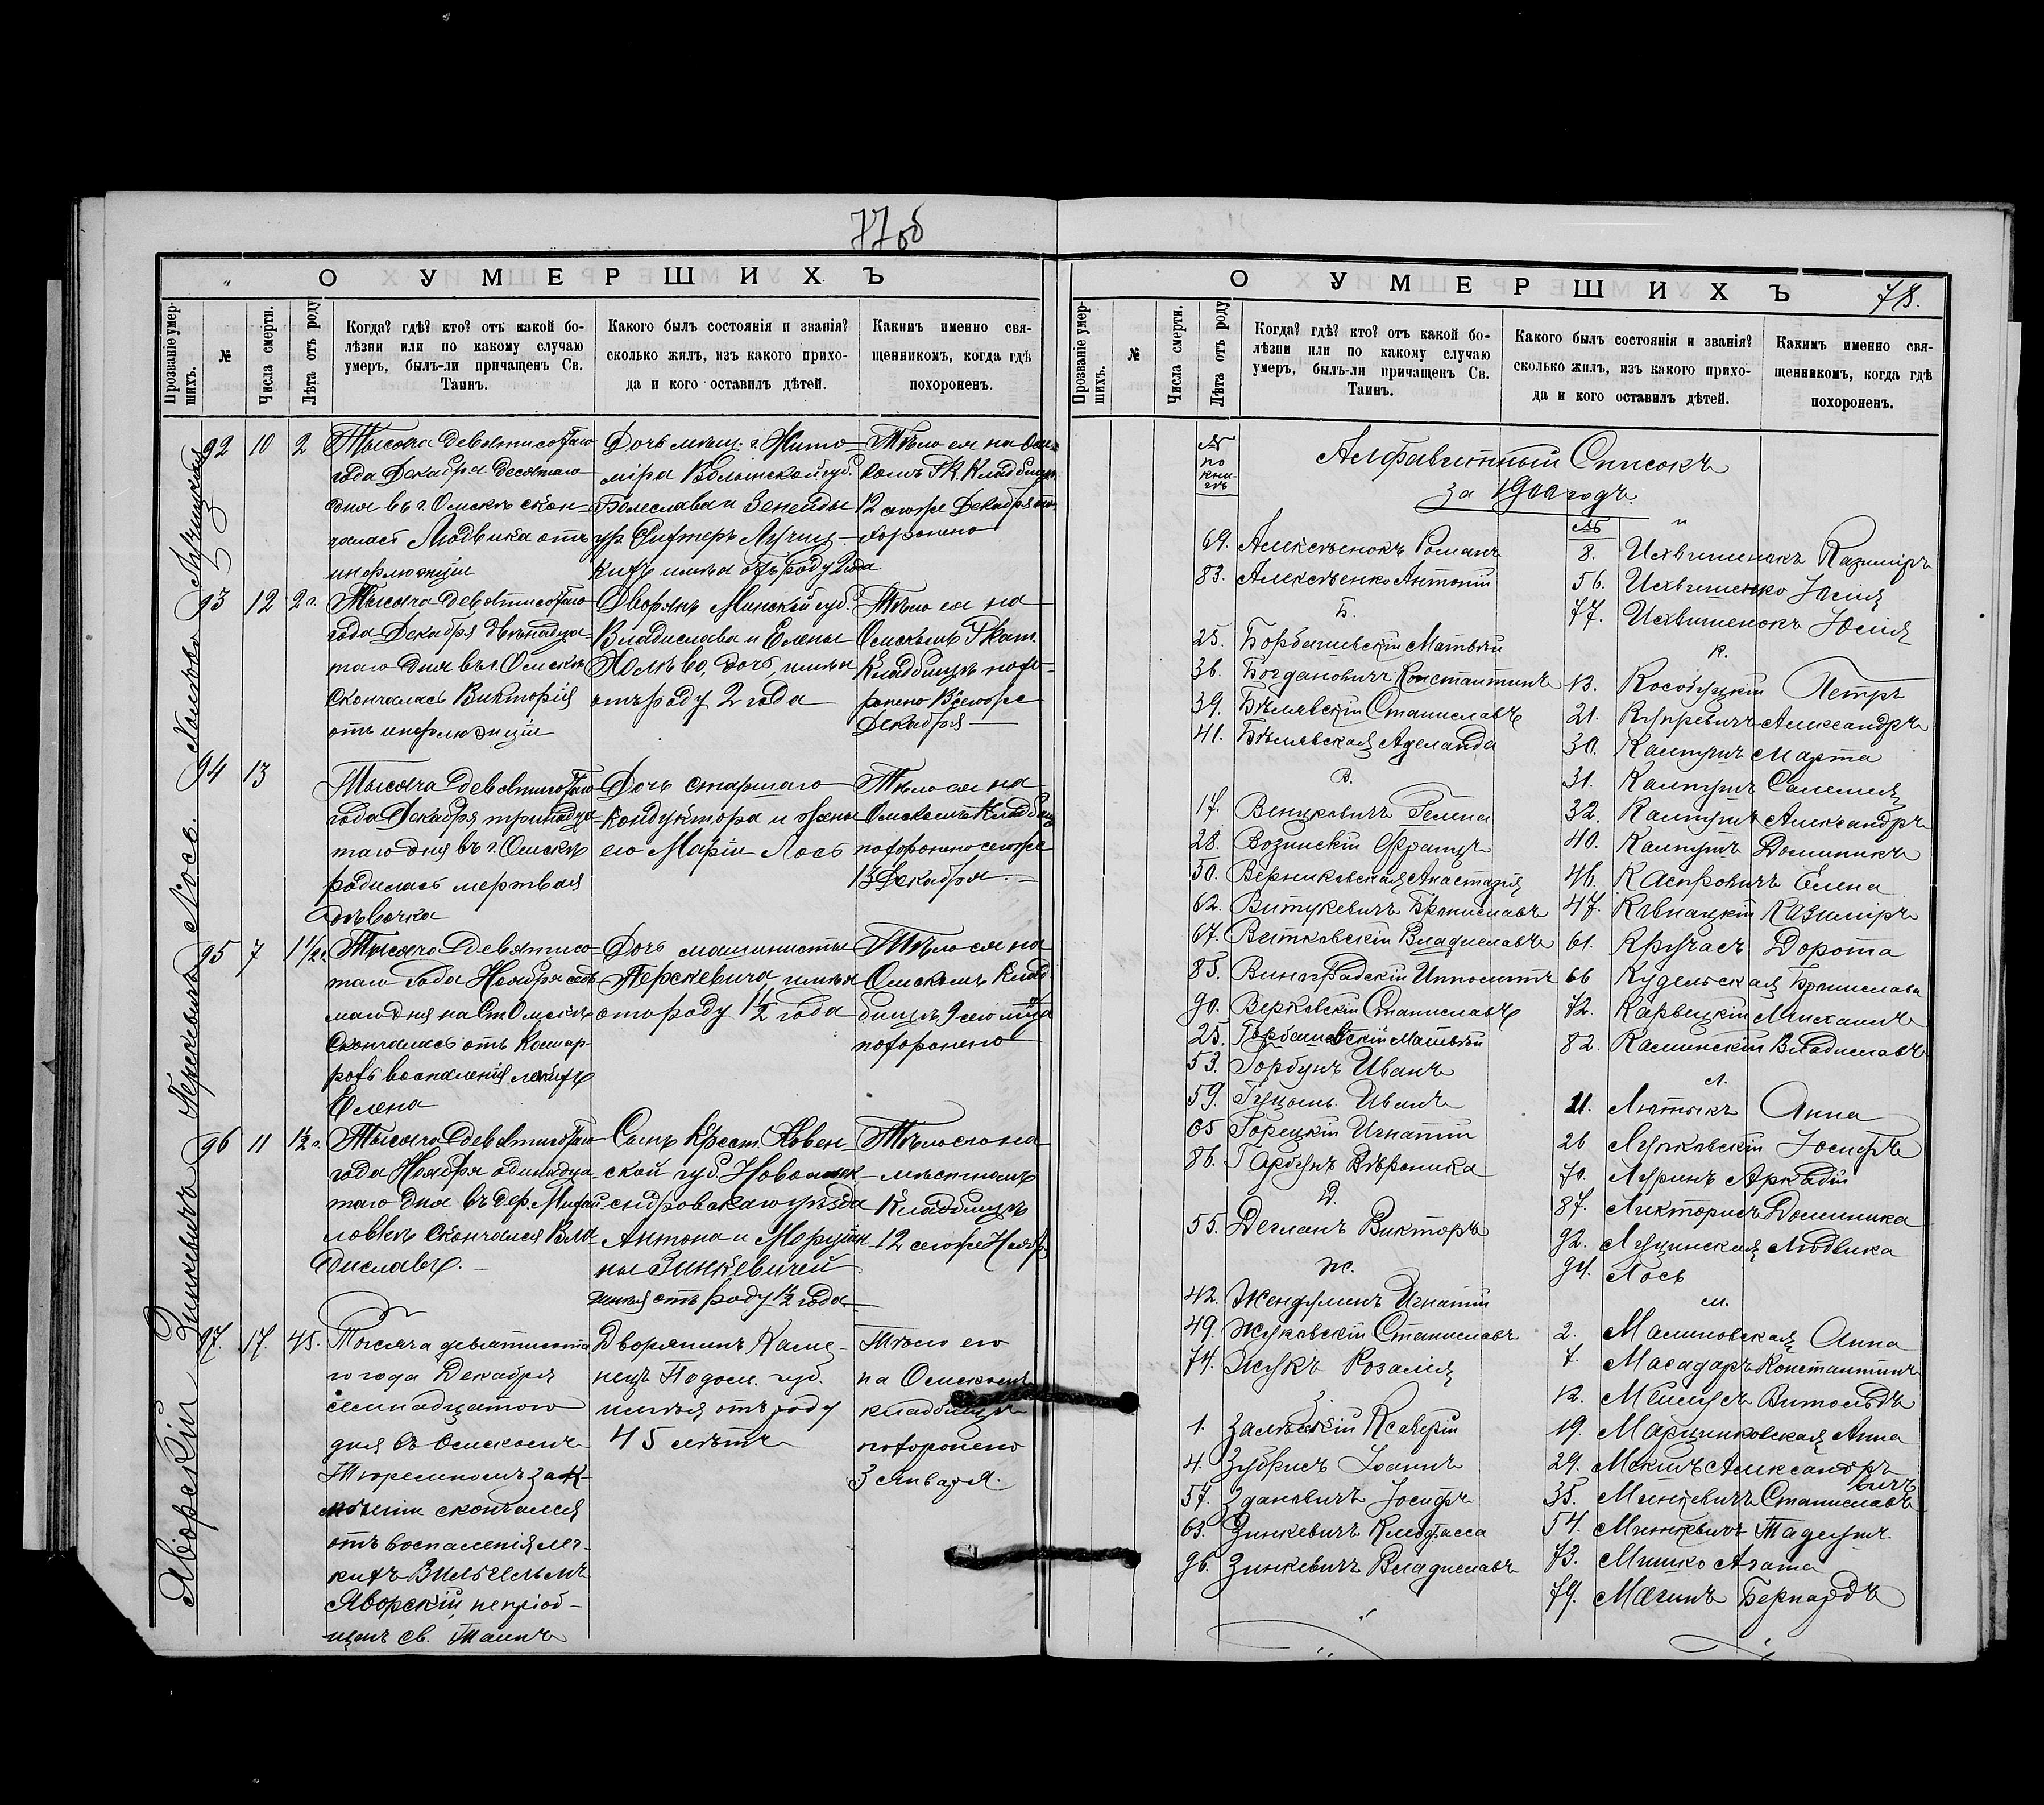 77 об
О УМЕРШИХЪ
Прозваніе умер-
шихъ.
№
Числа смерти.
Лѣта отъ роду
Когда? гдѣ? кто? отъ какой бо-
лѣзни или по какому случаю
умеръ, былъ-ли причащенъ Св.
Таинъ.
Какого былъ состоянія и званія?
сколько жилъ, изъ какого прихо-
да и кого оставилъ дѣтей.
Какимъ именно свя-
щенникомъ, когда гдѣ
похороненъ.
92 10 2
Тысяча девятисотаго
года Декабря десятаго
дня въ г. Омскѣ скон-
чалась Людвика отъ
инфлюэнціи
Дочь мѣщ. г. Жито-
міра Волынской губ.
Болеслава и Зенеиды
имѣя отъ роду 2 года
Тѣло ея на Омс-
комъ Р.К. Кладбищѣ
12 сего же Декабря по-
хоронено
93 12 2 г.
Тысяча девятисотаго
года Декабря двѣнадца
таго дня въ г. Омскѣ
скончалась Викторія
отъ инфлюэнціи
Дворянъ Минской губ.
Владислава и Елены
дочь, имѣя
отъ роду 2 года
Тѣло ея на
Омскомъ Р. Кат.
Кладбищѣ похо-
ронено 13 сего же
Декабря
Лось.
94 13
Тысяча девятисотаго
года Декабря тринадца-
таго дня въ г. Омскѣ
родилась мертвая
дѣвочка
Дочь старшаго
кондуктора и жены
его Маріи Лось
Тѣло ея на
Омскомъ Кладбищ
похоронено сего же
13 Декабря
Перскевичъ
95 7 1 1/2 г.
Тысяча девятисо-
таго года Ноября седь
маго дня на Ст. Омскъ
скончалась отъ катар-
ров. воспаленія легкихъ
Елена
Дочь машиниста
Перскевича, имѣя
отъ роду 1 1/2 года
Тѣло ея на
Омскомъ Клад-
бищѣ 9 сего м-ца
похоронено
Зинкевичъ
96 11 1 1/2 г.
Тысяча девятисотаго
года Ноября одинадца-
таго дня въ дер. Михай-
ловкѣ скончался Вла-
диславъ.
Сынъ Крест. Ковен-
ской губ. Новоалек-
сандровскаго уѣзда
Антона и Марціан-
ны Зинкевичей
имѣя отъ роду 1 1/2 года
Тѣло его на
мѣстномъ
Кладбищѣ
12 сего же Ноябр
Яворскій
97. 17. 45.
Тысяча девятисота
го года Декабря
семнадцатого
дня въ Омскомъ
Тюремномъ зак-
лоченіи скончался
отъ воспаленія лег-
кихъ Вильгельмъ
Яворскій, непріоб-
щенъ св. Таинъ
Дворянинъ Каме-
нецъ Подол. губ.
имѣя отъ роду
45 лѣтъ
Тѣло его
на Омскомъ
кладбищѣ
похоронено
3 Января.
О УМЕРШИХЪ
78.
Прозваніе умер-
шихъ.
№
Числа смерти.
Лѣта отъ роду
Когда? гдѣ? кто? отъ какой бо-
лѣзни или по какому случаю
умеръ, былъ-ли причащенъ Св.
Таинъ.
Какого былъ состоянія и званія?
сколько жилъ, изъ какого прихо-
да и кого оставилъ дѣтей.
Какимъ именно свя-
щенникомъ, когда гдѣ
похороненъ.
№
по
кни-
гѣ
Алфавитный Списокъ
за 1900 годъ
69. Алексѣенокъ Романъ
83. Алексѣенко Антоній
Б.
25. Борбашевскій Матвѣй
36. Богдановичъ Константинъ
39. Бѣлявскій Станиславъ
41. Бѣлявская Аделаида
В.
17. Венцковичъ Гелена
28. Возинскій Францъ
50. Верниковская Анастазія
62. Витукевичъ Брониславъ
67. Витковскій Владиславъ
85. Виноградскій Ипполитъ
90. Верковскій Станиславъ
25. Горбашевскій Матвѣй
53. Горбунъ Иванъ
59. Гуцонь Иванъ
65 Горецкій Игнатій
86. Гарбунъ Вѣроника
Д.
55. Дегланъ Викторъ
Ж.
42. Игнатій
49. Жуковскій Станиславъ
74. Жукъ Розалія
З.
1. Залѣскій Ксаверій
4. Зубрисъ Іоаннъ
57. Здановичъ Іосифъ
63. Зинкевичъ
96. Зинкевичъ Владиславъ
№
8. Казиміръ
56. Юлія
77. Юлія
К.
13. Кособуцкій Петръ
21. Купревичъ Александръ
30. Калтунъ Марта
31. Калтунъ Саломея
32. Калтунъ Александръ
40. Калтунъ Доминикъ
46. Каспровичъ Елена
47. Казиміръ
61. Кручасъ Дорота
66 Кудельская Бронислава
72. Карвецкій
82. Калинскій Владиславъ
Л.
11. Лютыкъ Анна
26 Лурковскій Іосифъ
70. Луринъ Аркадій
87. Ликторисъ Доминика
92. Людвика
94. Лось
М.
2. Малиновская Анна
7. Масадаръ Константинъ
12. Витольдъ
19. Марцинковская Анна
29. Александръ
35. Минкевичъ Станиславъ
54. Минкевичъ Тадеушъ
73. Мишко Агата
79. Бернардъ